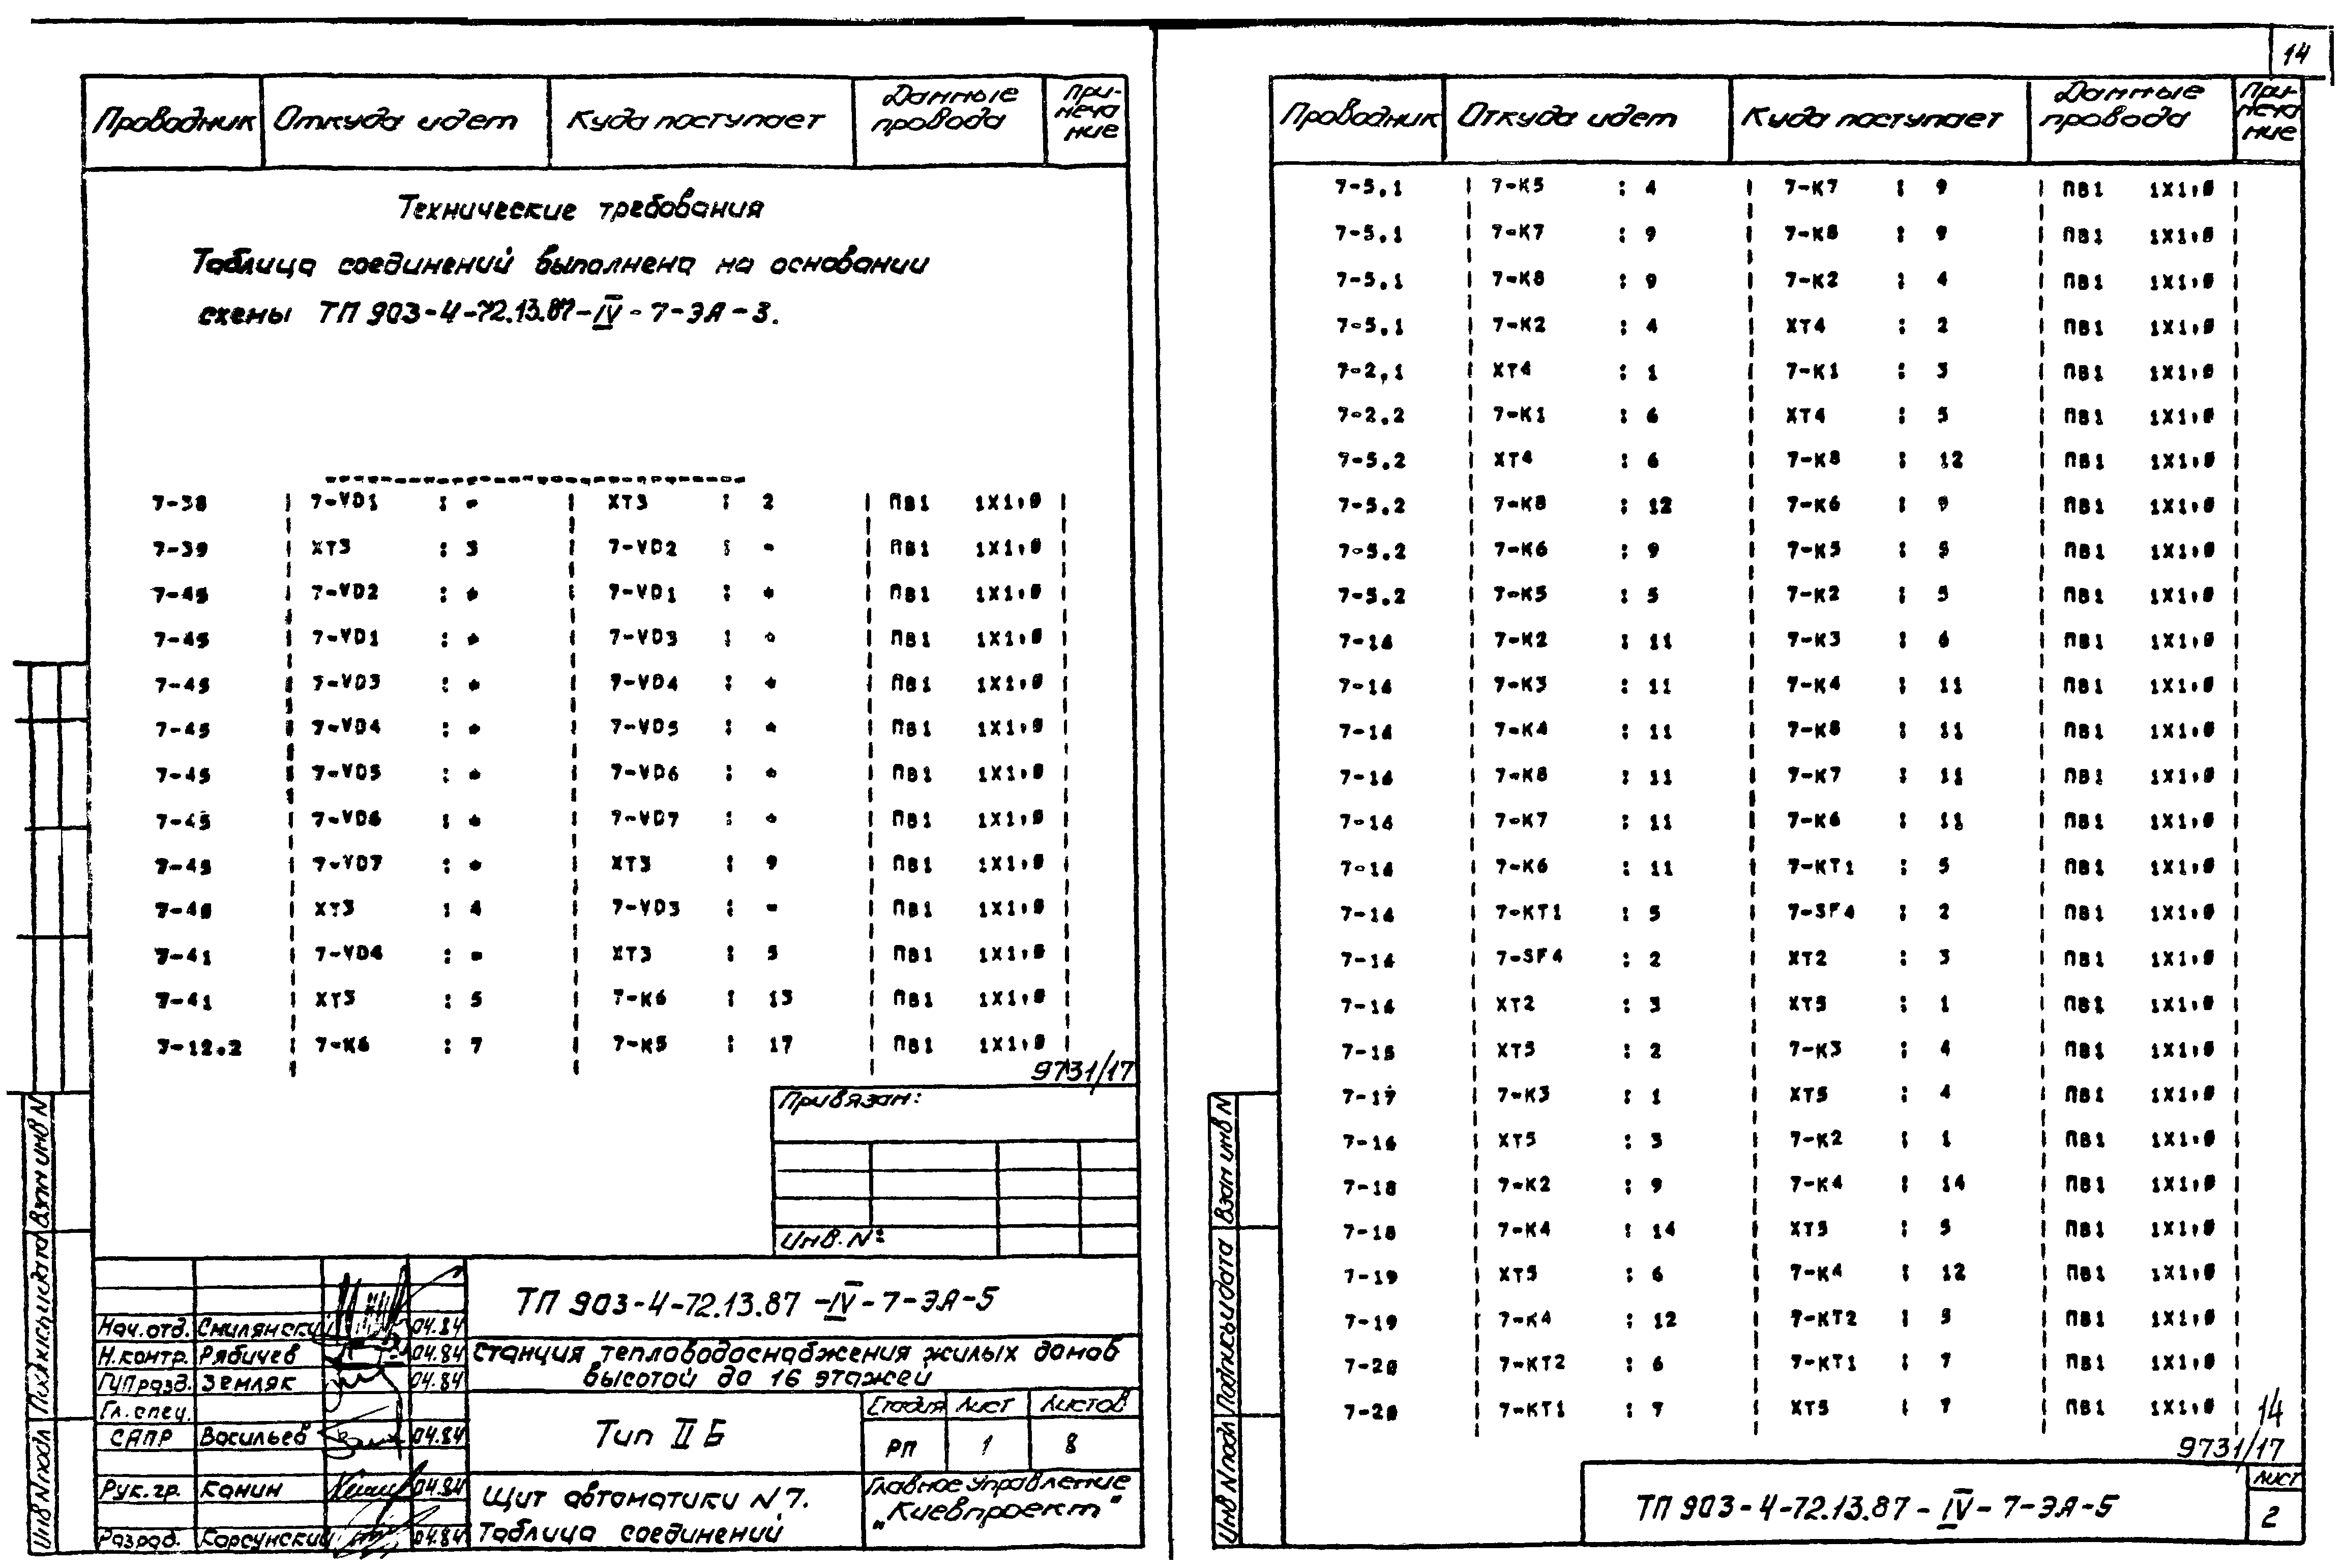 14
Проводник Откуда идет Куда поступает Данные провода Примечание
Технические требования
Таблица соединений выполнена на основании
схемы ТП 903-4-72.13.87-IV-7-ЭА-3.
7-38 7-VD1 : - ХТ3 : 2 ПВ1 1Х1,0
7-39 ХТ3 : 3 7-VD2 : - ПВ1 1Х1,0
7-45 7-VD2 : + 7-VD1 : + ПВ1 1Х1,0
7-45 7-VD1 : + 7-VD3 : + ПВ1 1Х1,0
7-45 7-VD3 : + 7-VD4 : + ПВ1 1Х1,0
7-45 7-VD4 : + 7-VD5 : + ПВ1 1Х1,0
7-45 7-VD5 : + 7-VD6 : + ПВ1 1Х1,0
7-45 7-VD6 : + 7-VD7 : + ПВ1 1Х1,0
7-45 7-VD7 : + ХТ3 : 9 ПВ1 1Х1,0
7-40 ХТ3 : 4 7-VD3 : - ПВ1 1Х1,0
7-41 7-VD4 : - ХТ3 : 5 ПВ1 1Х1,0
7-41 ХТ3 : 5 7-К6 : 13 ПВ1 1Х1,0
7-12.2 7-К6 : 7 7-К5 : 17 ПВ1 1Х1,0
9731/17
Привязан:
Инв. N:
ТП 903-4-72.13.87-IV-7-ЭА-5
Нач.отд. Смилянский 04.84
Н.контр. Рябичев 04.84
ГИП разд. Земляк 04.84
Гл. спец.
САПР Васильев 04.84
Рук. гр. Канин 04.84
Разраб. Карсунский 04.84
Станция тепловодоснабжения жилых домов
высотой до 16 этажей
Тип II Б
Стадия Лист Листов
РП 1 8
Щит автоматики N7.
Таблица соединений
Главное Управление
"Киевпроект"
Инв N подл Подпись и дата Взам инв N
Проводник Откуда идет Куда поступает Данные провода Примечание
7-5.1 7-К5 : 4 7-К7 : 9 ПВ1 1Х1,0
7-5.1 7-К7 : 9 7-К8 : 9 ПВ1 1Х1,0
7-5.1 7-К8 : 9 7-К2 : 4 ПВ1 1Х1,0
7-5.1 7-К2 : 4 ХТ4 : 2 ПВ1 1Х1,0
7-2.1 ХТ4 : 1 7-К1 : 3 ПВ1 1Х1,0
7-2.2 7-К1 : 6 ХТ4 : 5 ПВ1 1Х1,0
7-5.2 ХТ4 : 6 7-К8 : 12 ПВ1 1Х1,0
7-5.2 7-К8 : 12 7-К6 : 9 ПВ1 1Х1,0
7-5.2 7-К6 : 9 7-К5 : 5 ПВ1 1Х1,0
7-5.2 7-К5 : 5 7-К2 : 5 ПВ1 1Х1,0
7-14 7-К2 : 11 7-К3 : 6 ПВ1 1Х1,0
7-14 7-К3 : 11 7-К4 : 11 ПВ1 1Х1,0
7-14 7-К4 : 11 7-К8 : 11 ПВ1 1Х1,0
7-14 7-К8 : 11 7-К7 : 11 ПВ1 1Х1,0
7-14 7-К7 : 11 7-К6 : 11 ПВ1 1Х1,0
7-14 7-К6 : 11 7-КТ1 : 5 ПВ1 1Х1,0
7-14 7-КТ1 : 5 7-SF4 : 2 ПВ1 1Х1,0
7-14 7-SF4 : 2 ХТ2 : 3 ПВ1 1Х1,0
7-14 ХТ2 : 3 ХТ5 : 1 ПВ1 1Х1,0
7-15 ХТ5 : 2 7-К3 : 4 ПВ1 1Х1,0
7-17 7-К3 : 1 ХТ5 : 4 ПВ1 1Х1,0
7-16 ХТ5 : 3 7-К2 : 1 ПВ1 1Х1,0
7-18 7-К2 : 9 7-К4 : 14 ПВ1 1Х1,0
7-18 7-К4 : 14 ХТ5 : 5 ПВ1 1Х1,0
7-19 ХТ5 : 6 7-К4 : 12 ПВ1 1Х1,0
7-19 7-К4 : 12 7-КТ2 : 5 ПВ1 1Х1,0
7-20 7-КТ2 : 6 7-КТ1 : 7 ПВ1 1Х1,0
7-20 7-КТ1 : 7 ХТ5 : 7 ПВ1 1Х1,0
14
9731/17
ТП 903-4-72.13.87-IV-7-ЭА-5
Лист
2
Инв N подл Подпись и дата Взам инв N